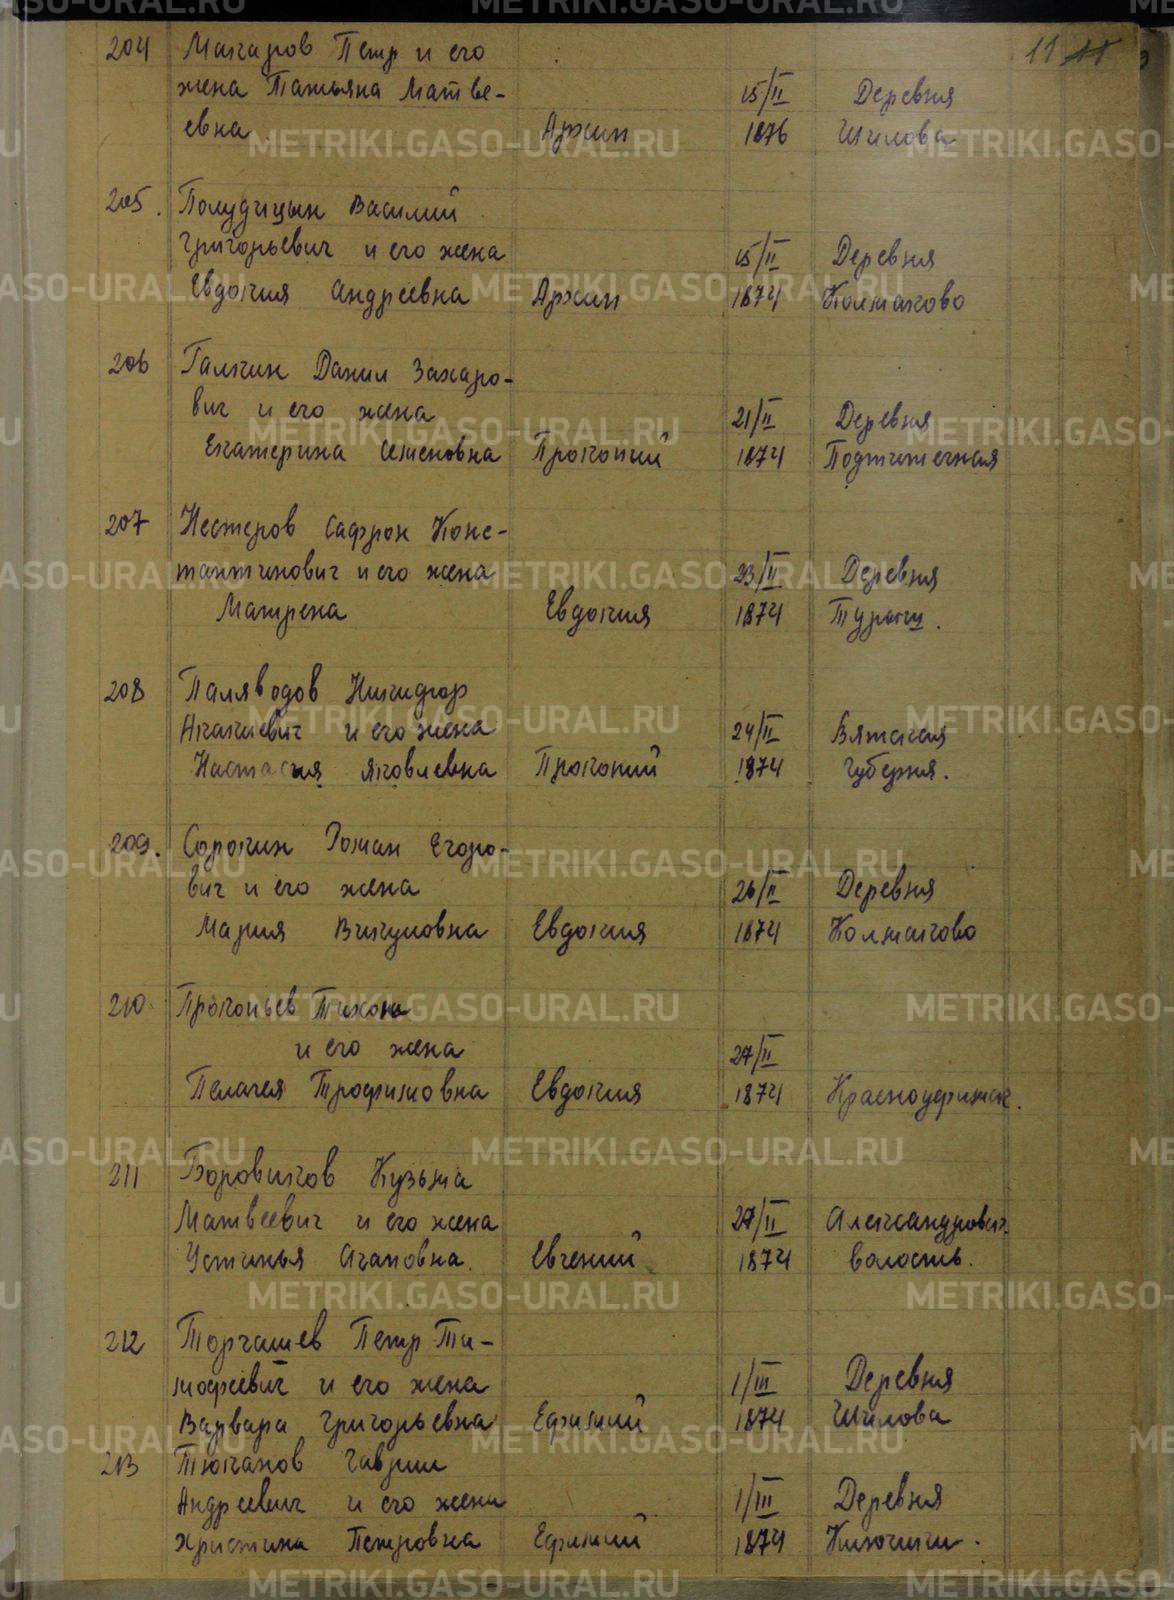 11 11
204 Макаров Петр и его
жена Татьяна Матве- 15/II Деревня
евна Архип 1876 Шилова
205. Полудницын Василий
Григорьевич и его жена 15/II Деревня
Евдокия Андреевна Архип 1874 Колмаково
206 Галкин Данил Захаро-
вич и его жена 21/II Деревня
Екатерина Семеновна Прокопий 1874 Подгитечная
207 Нестеров Сафрон Конс-
тантинович и его жена 23/II Деревня
Матрена Евдокия 1874 Турыги.
208 Паляводов Никифор
Акакиевич и его жена 24/II Вятская
Настасия Яковлевна Прокопий 1874 Губерня.
209. Сорокин Роман Егоро-
вич и его жена 26/II Деревня
Мария Викуловна Евдокия 1874 Колмаково
210. Прокопьев Тихон
и его жена 27/II
Пелагея Трофимовна Евдокия 1874 Красноуфимск.
211 Боровиков Кузьма
Матвеевич и его жена 27/II Александровск.
Устинья Агаповна. Евгений 1874 волость.
212 Торгашев Петр Ти-
мофеевич и его жена 1/III Деревня
Варвара Григорьевна Ефимий 1874 Шилова
213 Тюканов Гаврил
Андреевич и его жена 1/III Деревня
Христина Петровна Ефимий 1874 Ключики.
METRIKI.GASO-URAL.RU